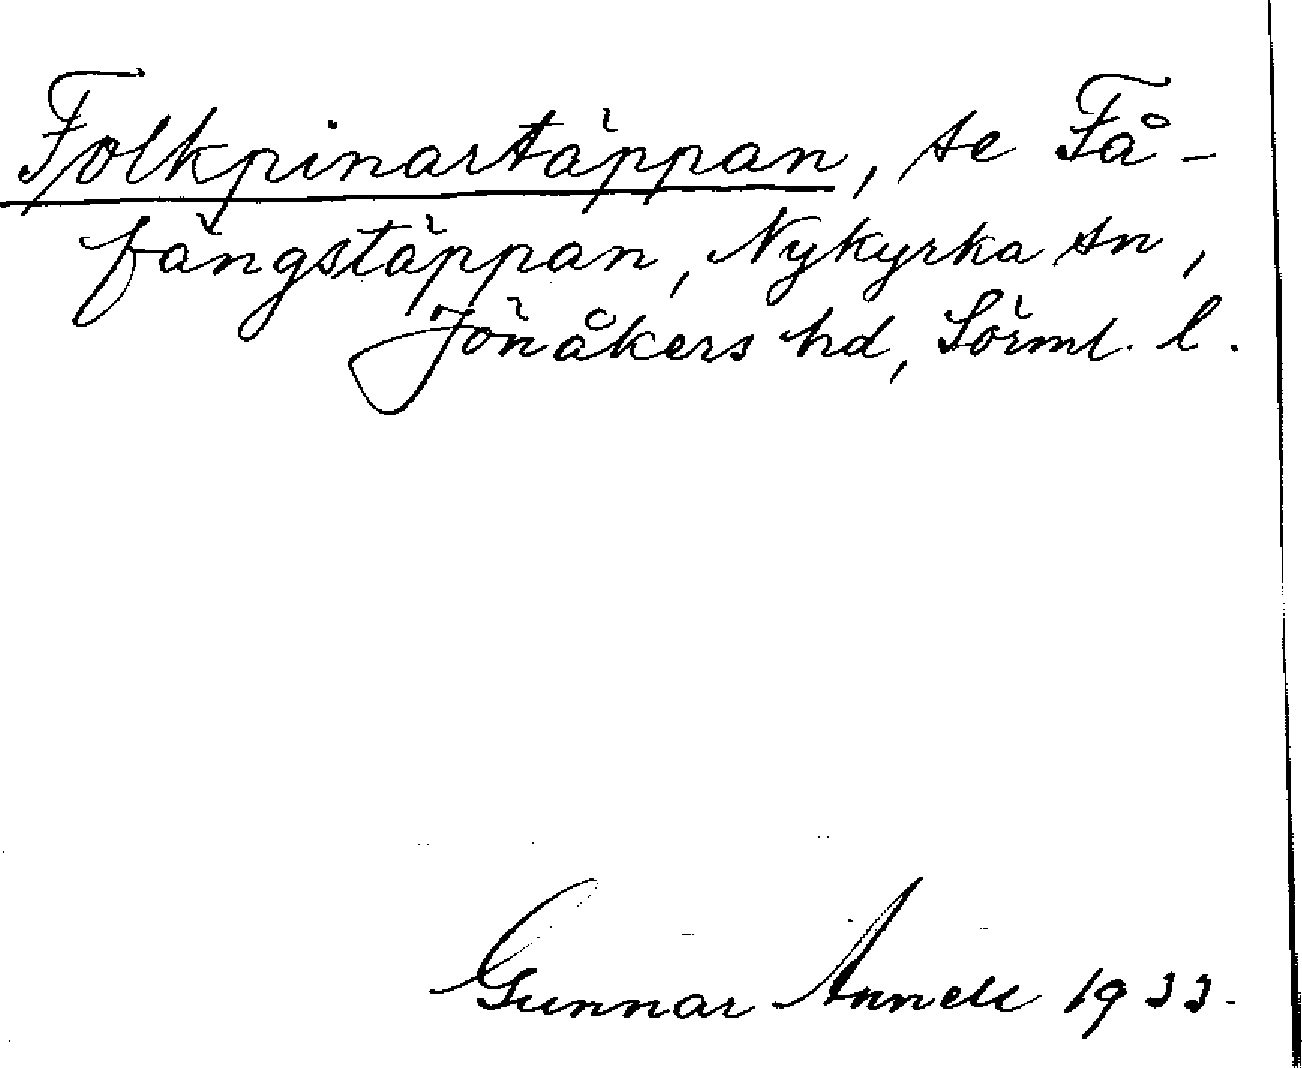 Folkpinartäppan, se Få-
fängstäppan, Nykyrka sn,
Jönåkers hd, Sörml. l.
Gunnar Annell 1933.